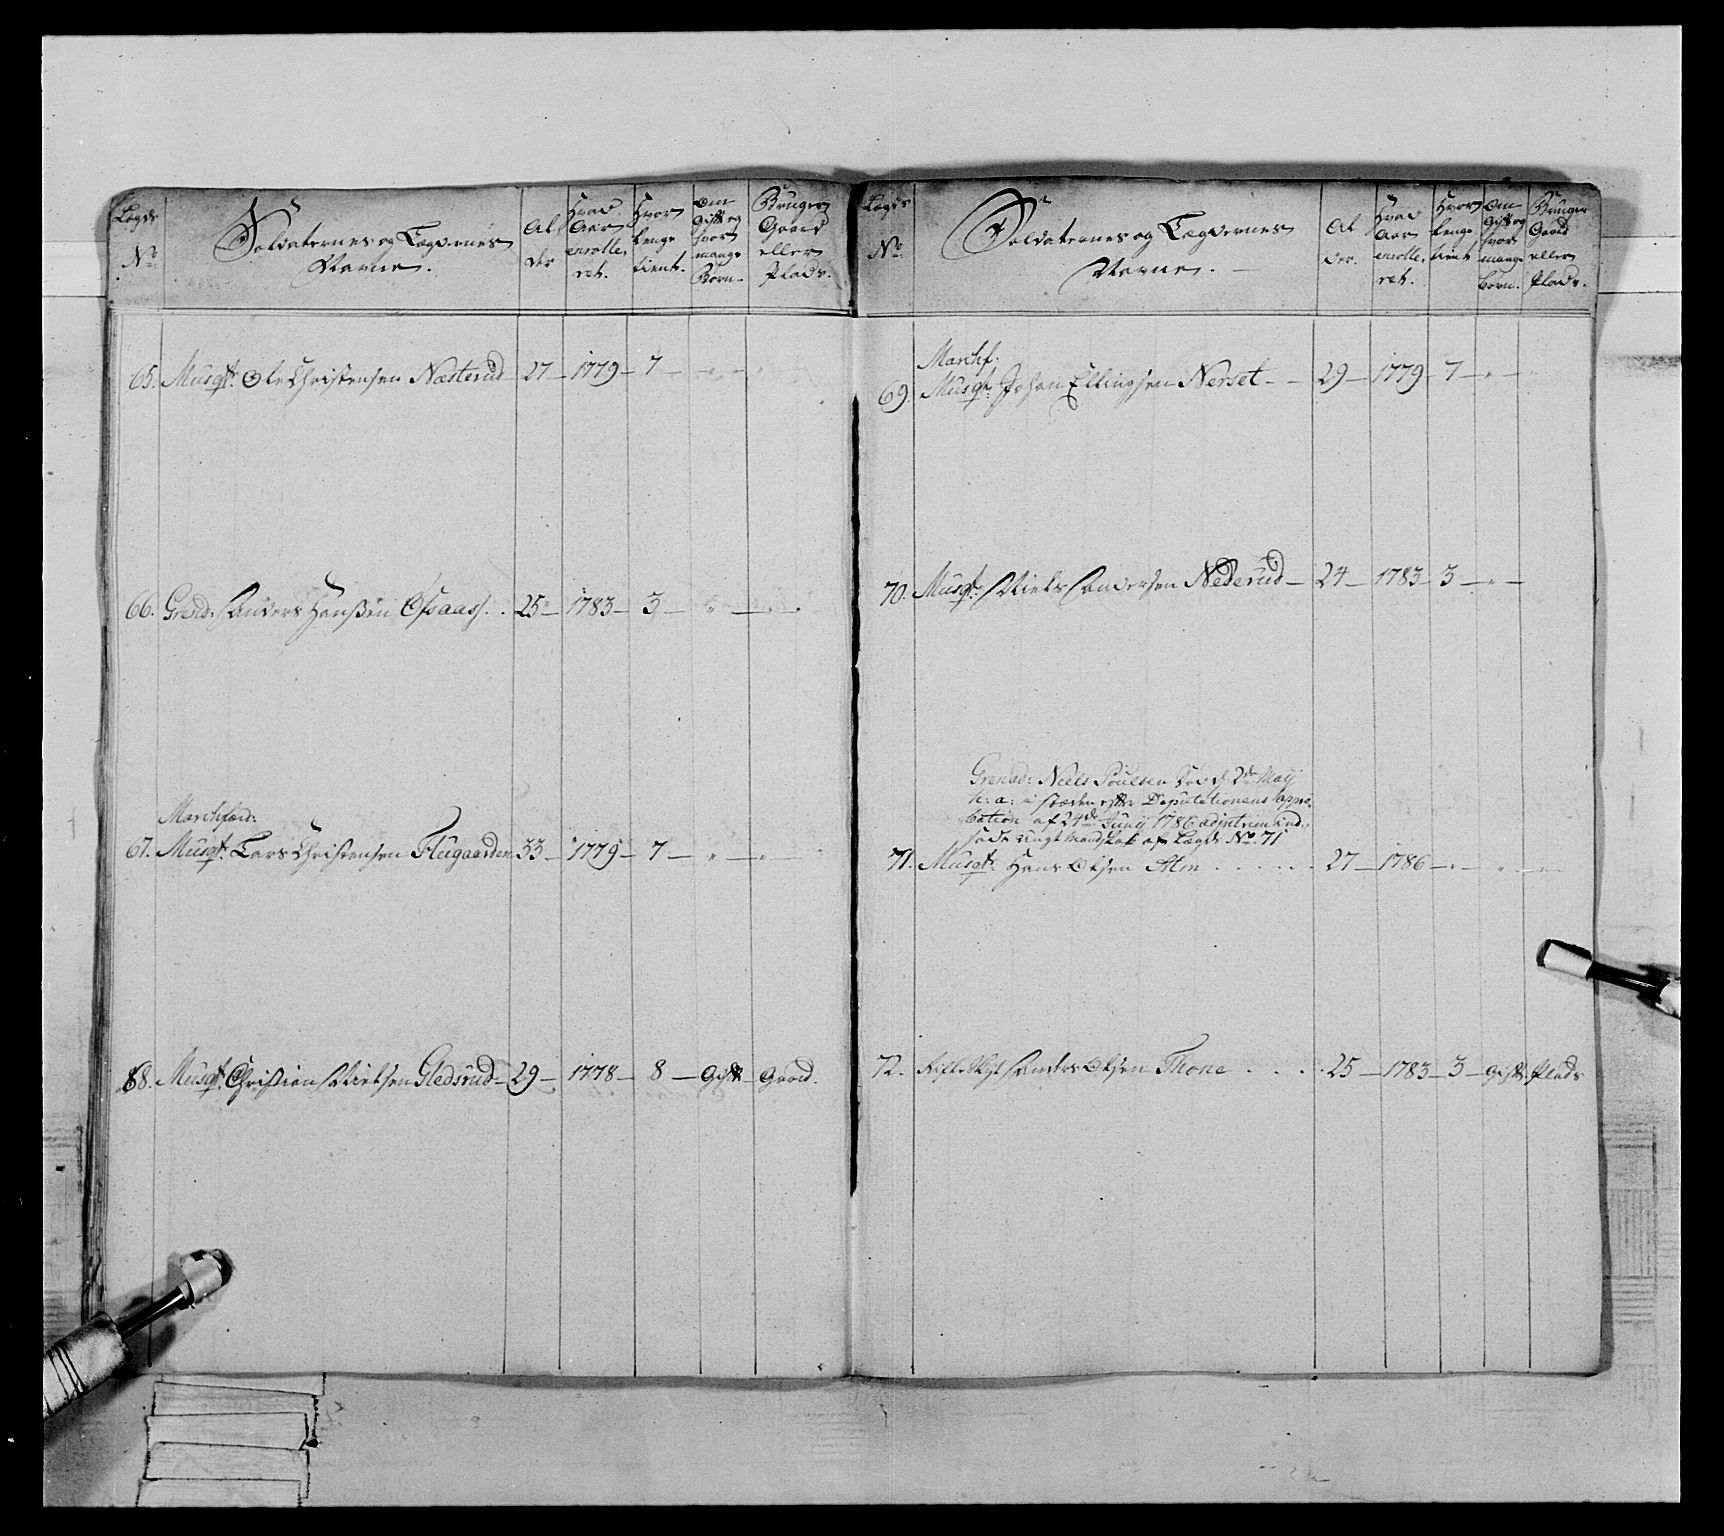 Lægds No. Soldaternes og Lægdernes Navne. Al der Hvad Aar enrolle ret. Hvor lenge tient. Om Gift og hvor mange Børn. Bruger Gaard eller Plads.
65. Musqt: Ole Christensen Næsterud 27 - 1779 - 7 -
66. Grend: Anders Hanssen 25 - 1783 - 3 - " -
Marchford:
67. Musqt: Lars Christensen Flugaarden 33 - 1779 - 7 - " - " -
68. Musqt: Christian Nielsen Gledsrud - 29 - 1778 - 8 - Gift Gaard.
Lægds No. Soldaternes og Lægdernes Navne. Al der. Hvad Aar enrolle ret. Hvor lenge tient Om Gift og hvor mange Børn. Bruger Gaard eller Plads.
Marchf.
69. Musqt: Johan Ellingsen Nerset - - 29 - 1779 - 7 - " -
70. Musqt: Niels Andersen Nederud - 24 - 1783 - 3 - " -
Grenad: Niels Poulsen 2de Maij
h: a: i stæden efter Deputationens appro-
bation af 24de Junij 1786
ungt Mandskab af Lægds No. 71
71. Musqt: Hans Olsen Alm . . . . . . 27 - 1786 - " - " -
72. Anders Olsen Thone . . . . 25 - 1783 - 3 - Gift Plads